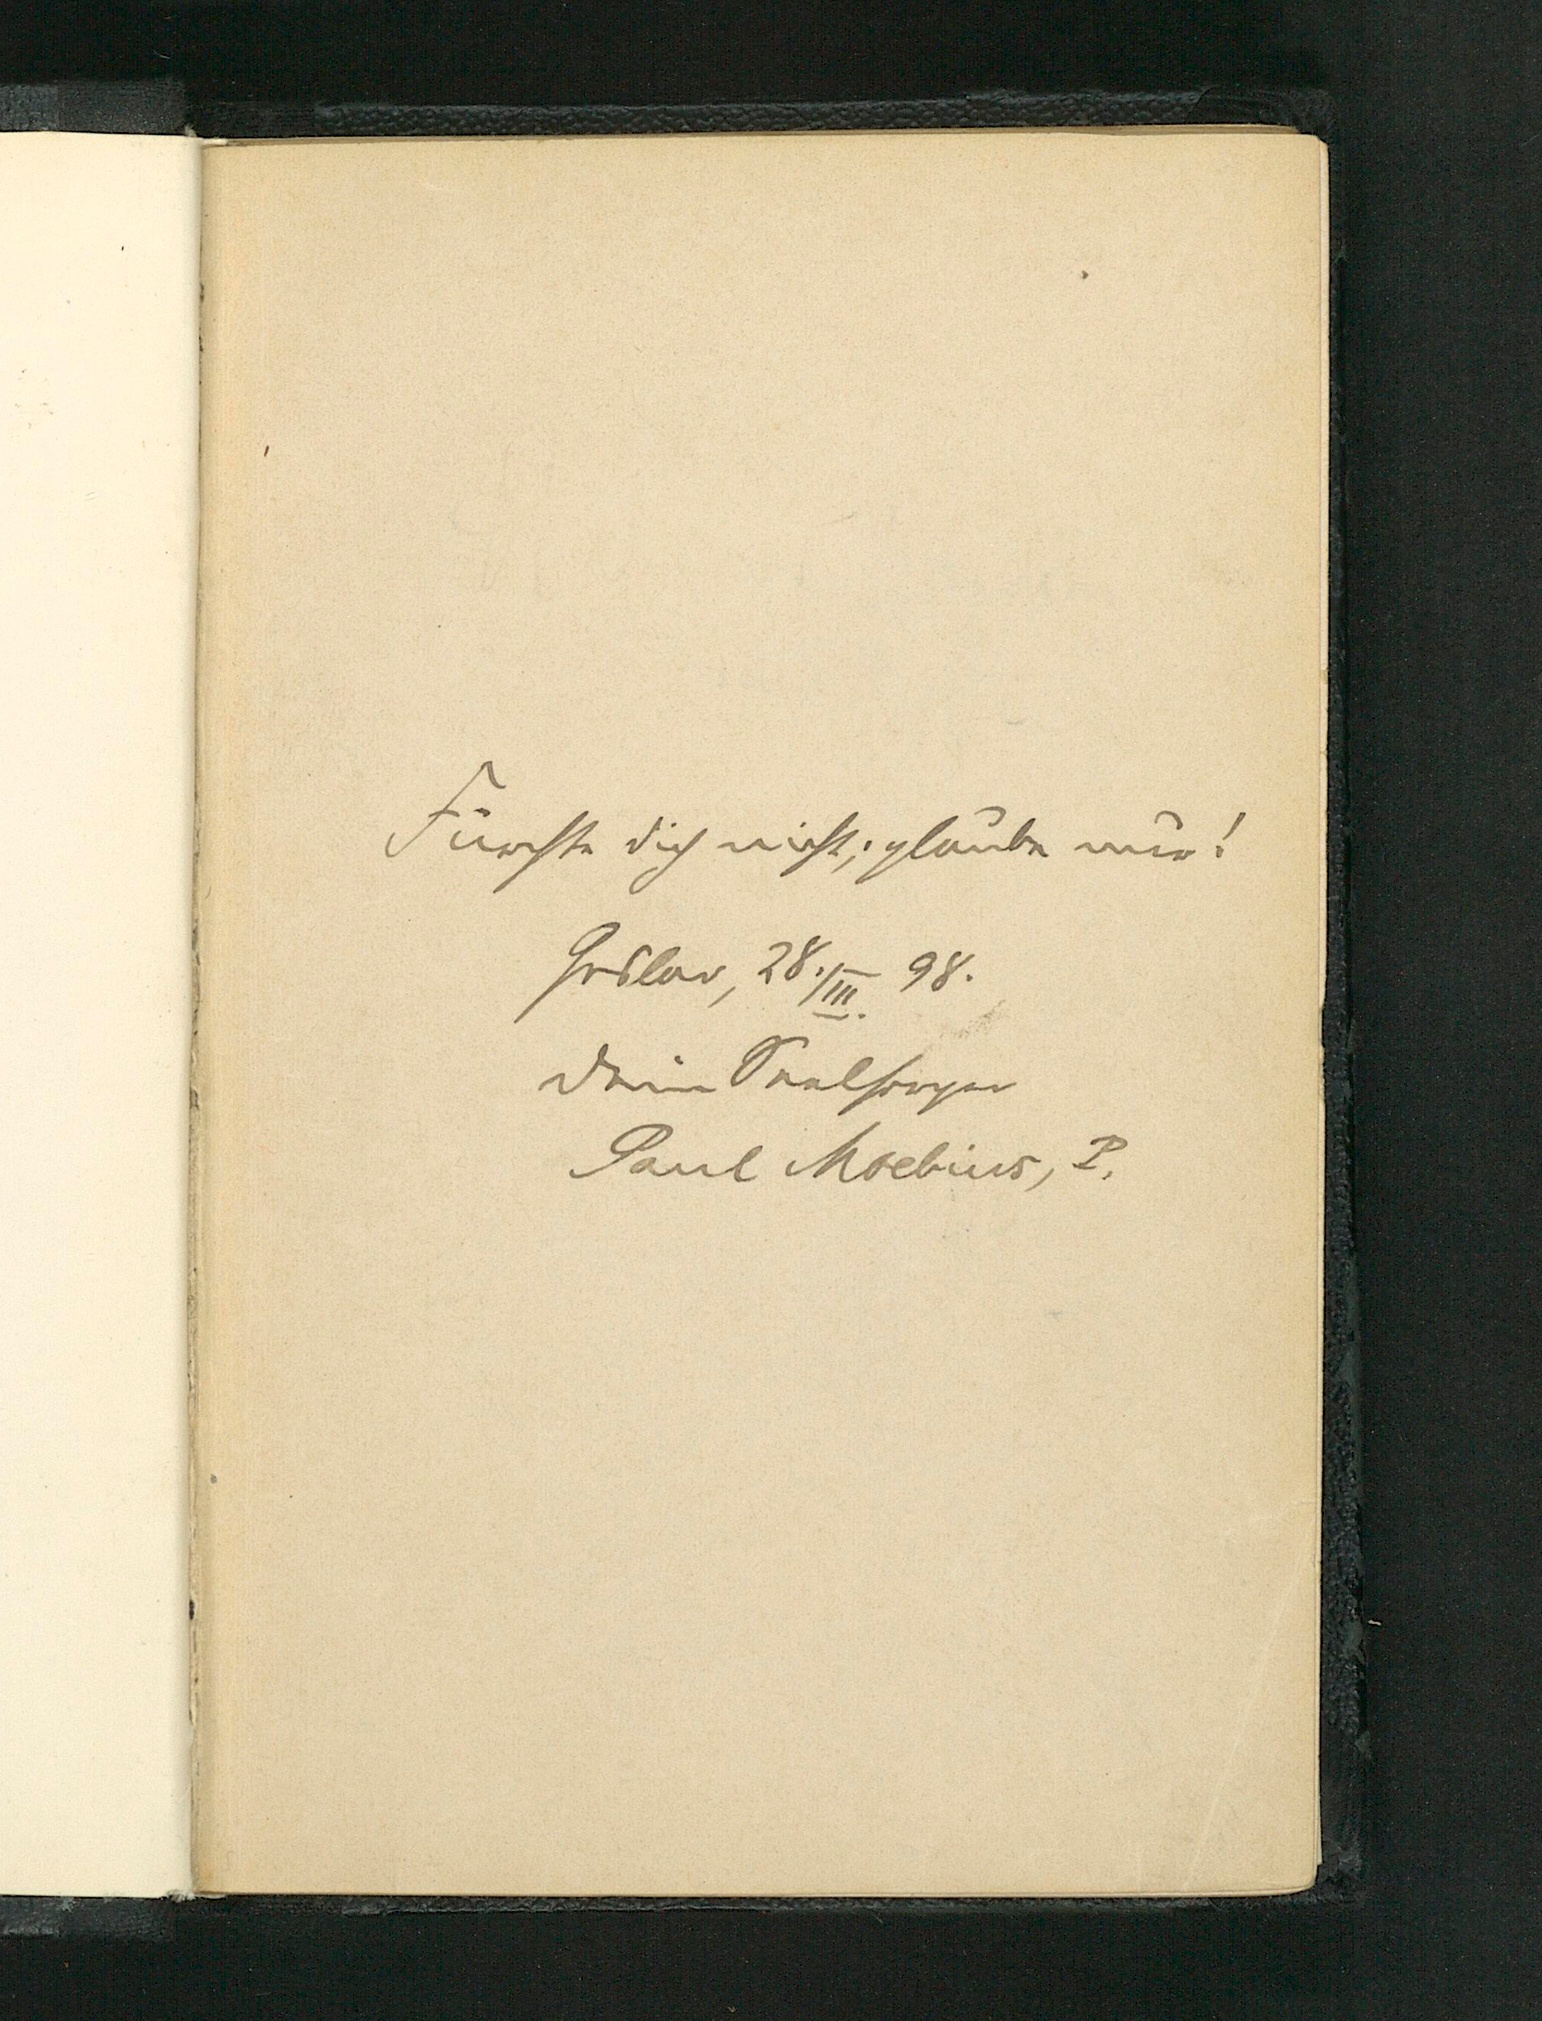 Fürchte dich nicht, glaube nur!
Goslar, 28./III. 98.
Dein Seelsorger
Paul Moebius, P.